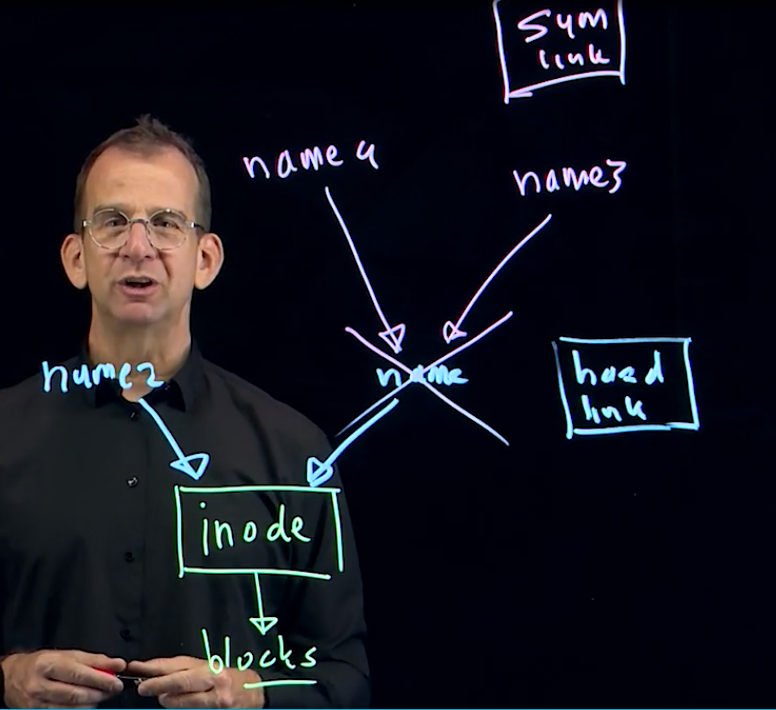 sym
link
name4
name3
name2
name
hard
link
inode
blocks